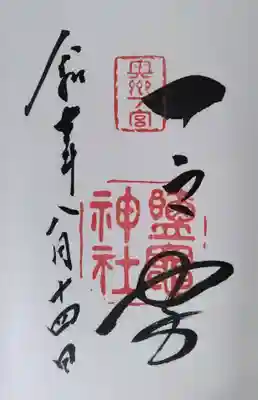 奥州
一宮
一之宮
鹽竈
神社
令和七年八月十四日